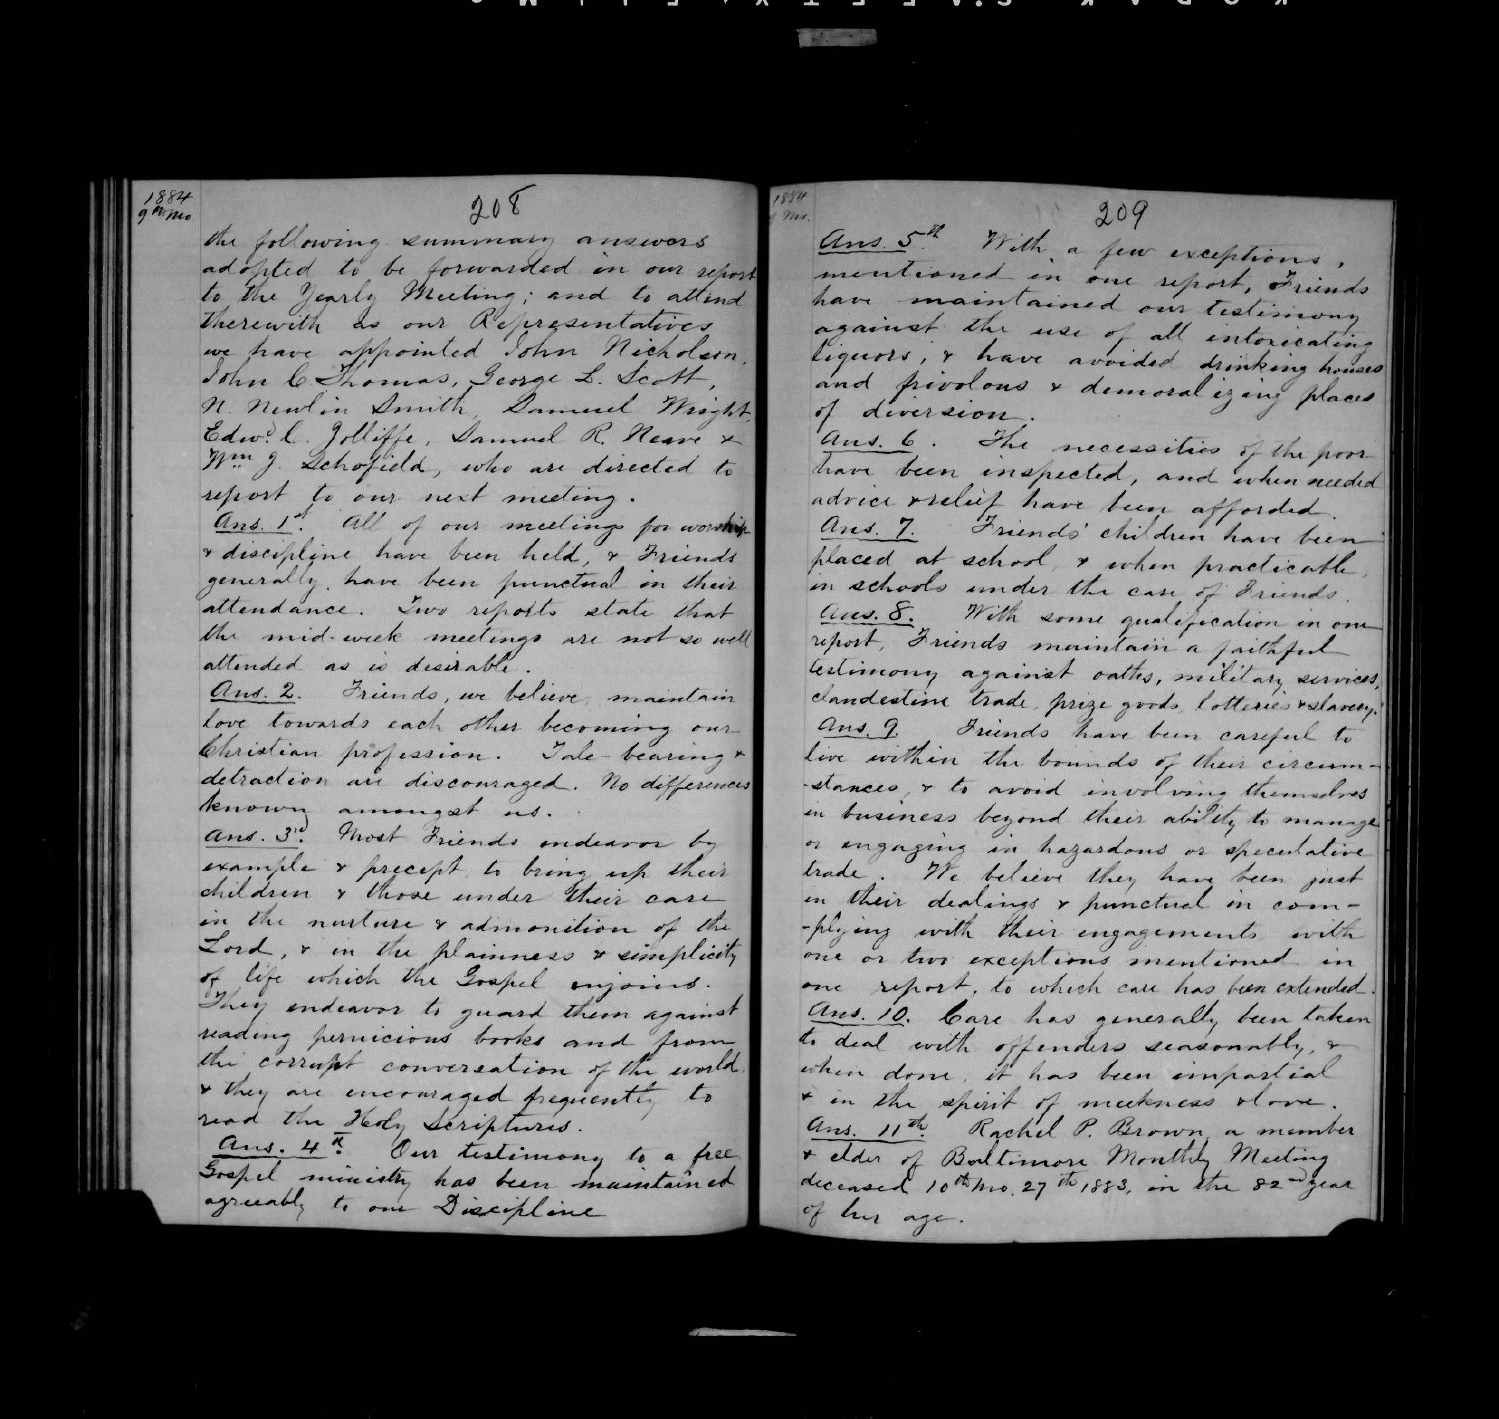 1884
9th Mo.
208
the following summary answers
adopted to be forwarded in our report
to the Yearly Meeting; and to attend
therewith as our Representatives
we have appointed John Nicholson,
John C. Thomas, George L. Scott,
N. Newlin Smith, Samuel Wright,
Edwd. C. Jolliffe, Samuel R. Neave &
Wm J. Schofield, who are directed to
report to our next meeting.
Ans. 1st. All of our meetings for worship
& discipline have been held, & Friends
generally, have been punctual in their
attendance. Two reports state that
the mid-week meetings are not so well
attended as is desirable.
Ans. 2. Friends, we believe, maintain
love towards each other becoming our
Christian profession. Tale-bearing &
detraction are discouraged. No differences
known amongst us.
Ans. 3rd. Most Friends endeavor by
example & precept to bring up their
children & those under their care
in the nurture & admonition of the
Lord, & in the plainness & simplicity
of life which the Gospel enjoins.
They endeavor to guard them against
reading pernicious books and from
the corrupt conversation of the world,
& they are encouraged frequently to
read the Holy Scriptures.
Ans. 4th. Our testimony to a free
Gospel ministry has been maintained
agreeably to our Discipline
1884
9 Mo.
209
Ans. 5th With a few exceptions,
mentioned in one report, Friends
have maintained our testimony
against the use of all intoxicating
liquors, & have avoided drinking houses
and frivolous & demoralizing places
of diversion.
Ans. 6. The necessities of the poor
have been inspected, and when needed
advice & relief have been afforded.
Ans. 7. Friends' children have been
placed at school, & when practicable,
in schools under the care of Friends.
Ans. 8. With some qualification in one
report, Friends maintain a faithful
testimony against oaths, military services,
clandestine trade, prize goods, lotteries & slavery.
Ans. 9. Friends have been careful to
live within the bounds of their circum-
-stances, & to avoid involving themselves
in business beyond their ability to manage
or engaging in hazardous or speculative
trade. We believe they have been just
in their dealings & punctual in com-
-plying with their engagements with
one or two exceptions mentioned in
one report, to which care has been extended.
Ans. 10. Care has generally been taken
to deal with offenders seasonably, &
when done, it has been impartial
& in the spirit of meekness & love.
Ans. 11th. Rachel P. Brown, a member
& elder of Baltimore Monthly Meeting
deceased 10th Mo. 27th 1883, in the 82nd year
of her age.